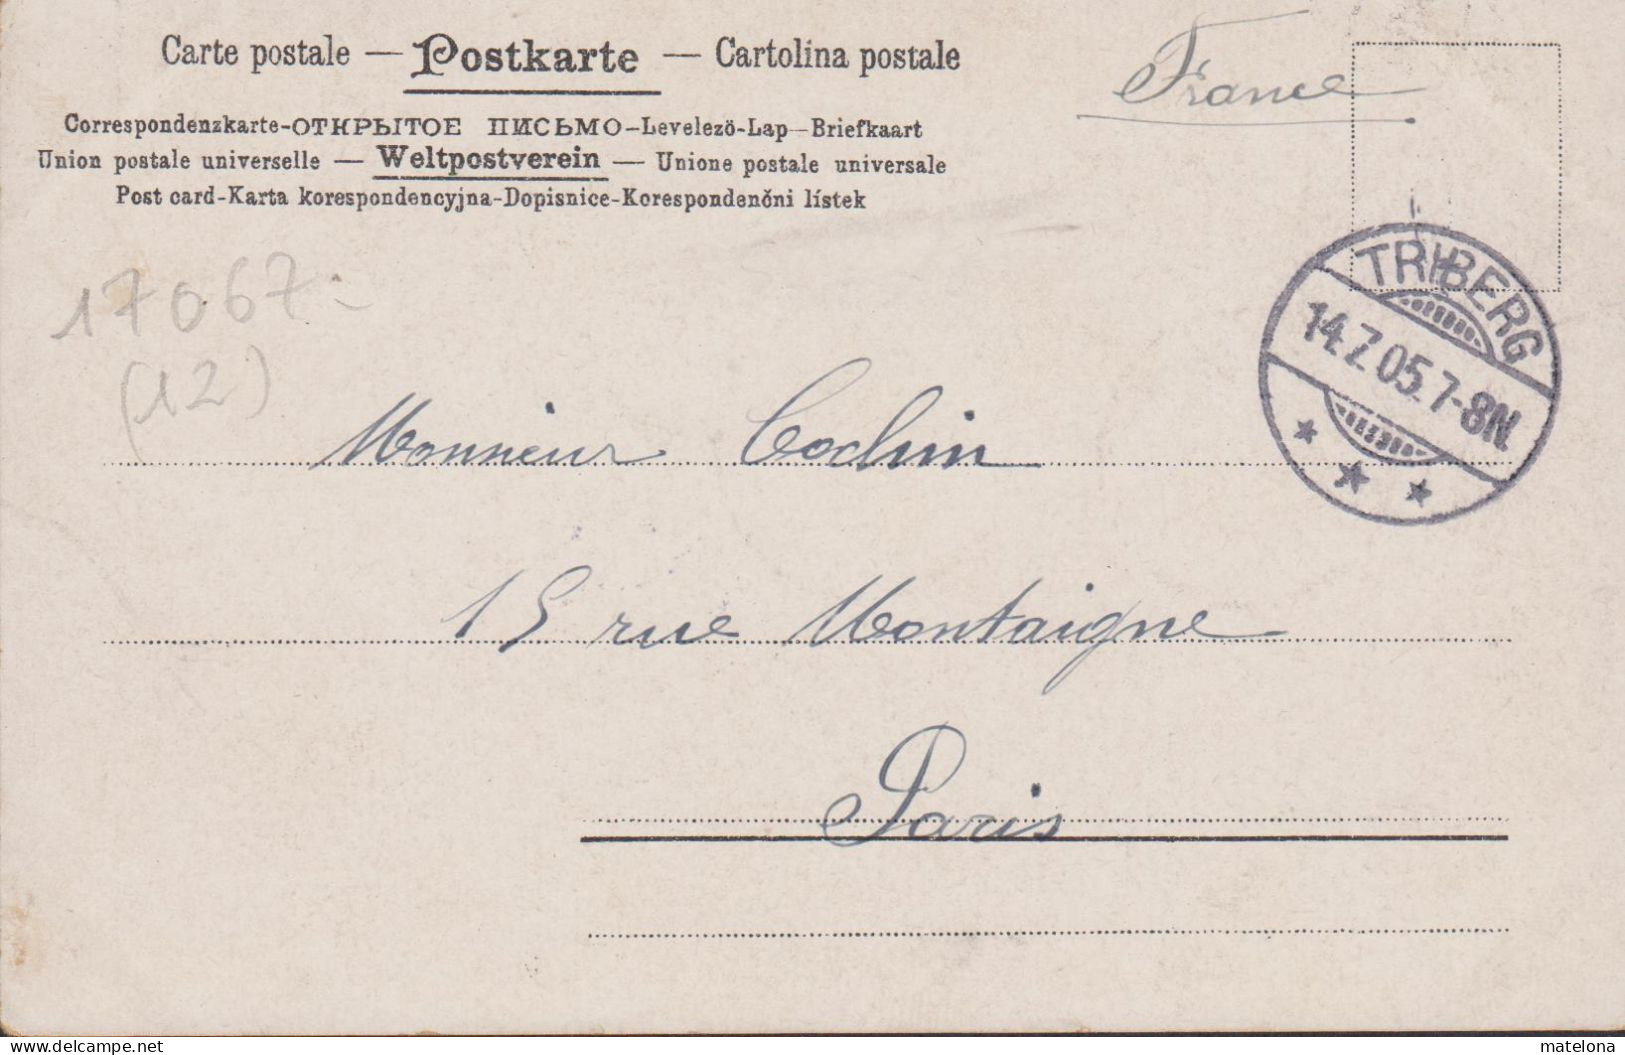 Carte postale — Postkarte — Cartolina postale
France
Correspondenzkarte-ОТКРЫТОЕ ПИСЬМО-Levelezö-Lap-Briefkaart
Union postale universelle — Weltpostverein — Unione postale universale
Post card-Karta korespondencyjna-Dopisnice-Korespondenčni lístek
TRIBERG
14.7.05.7-8N.
17067-
(12)
Monnieur Cochin
15 rue Montaigne
Paris
www.delcampe.net
matelona